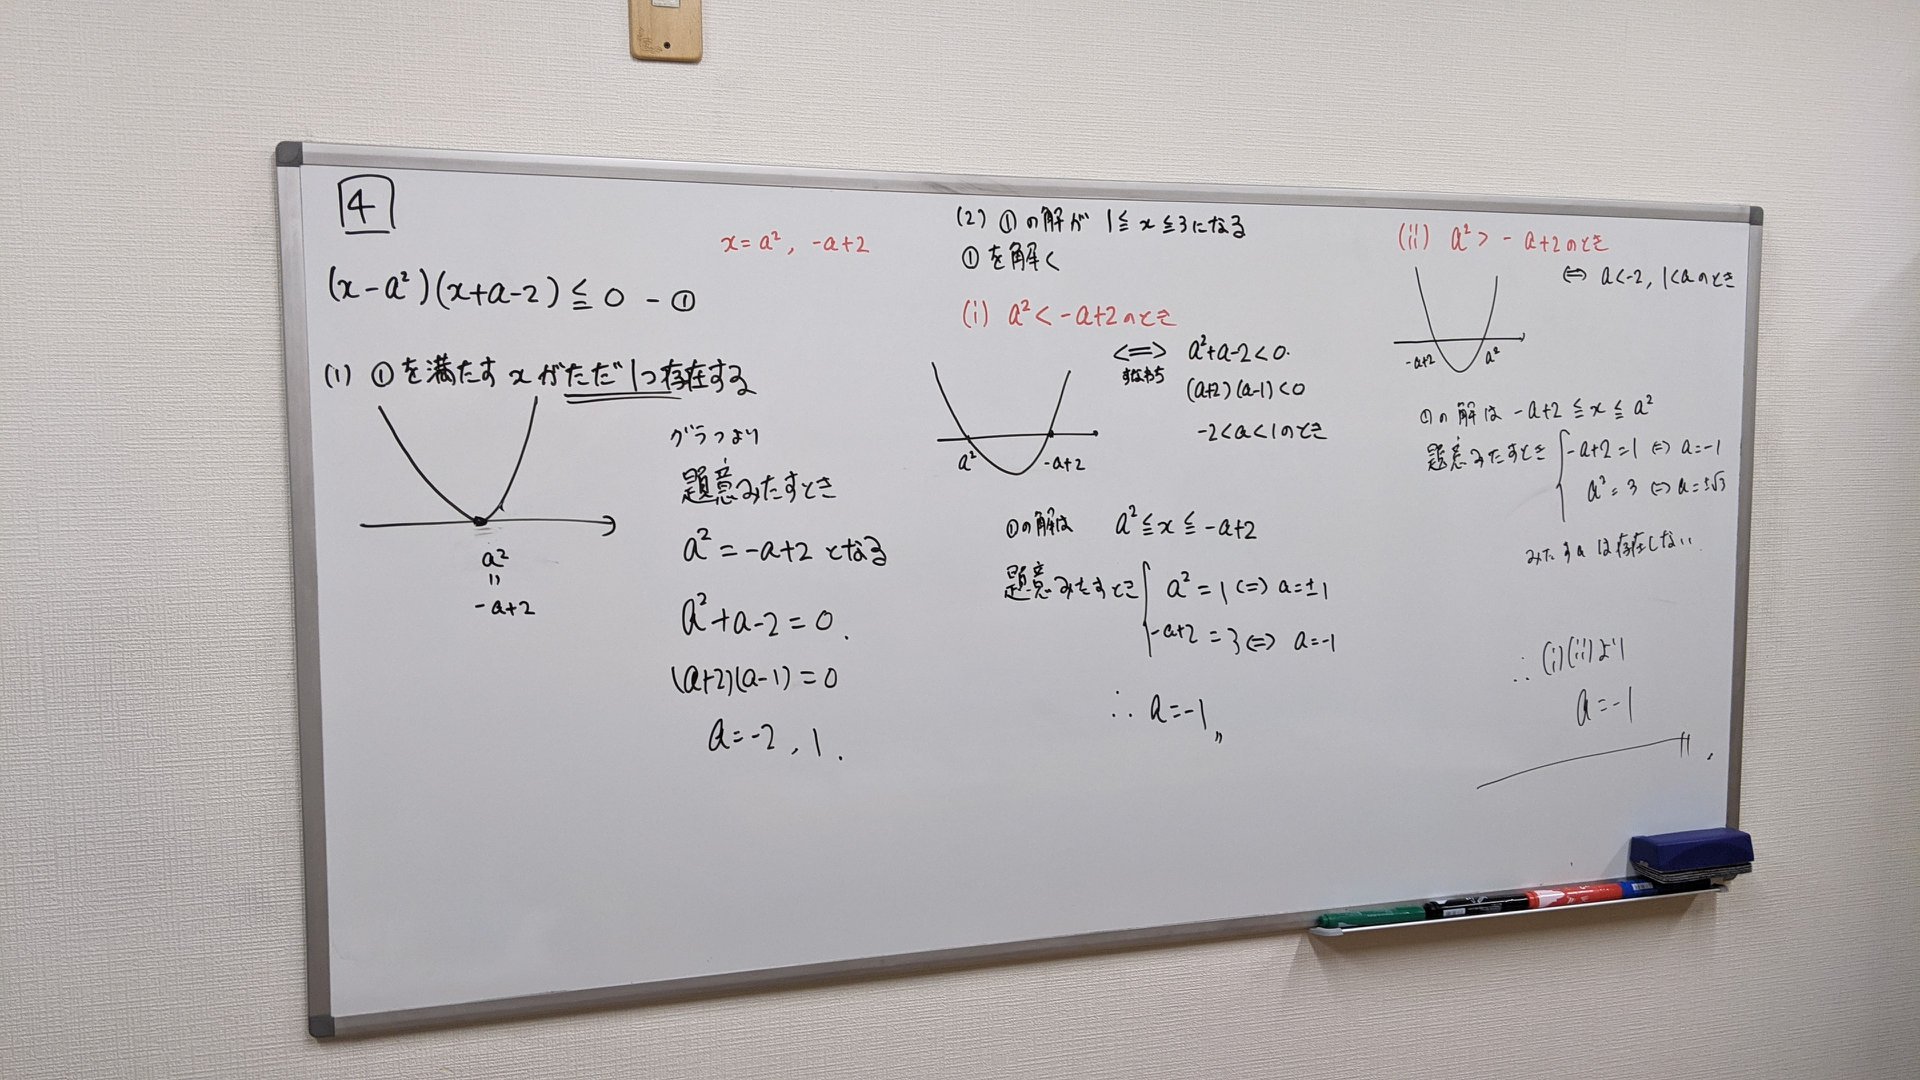 4
x=a², -a+2
(x-a²)(x+a-2)≦0 -①
(1) ①を満たす xがただ1つ存在する
a²
=
-a+2
グラフより
題意みたすとき
a²=-a+2となる
a²+a-2=0.
(a+2)(a-1)=0
a=-2, 1.
(2) ①の解が 1≦x≦3になる
①を解く
(i) a²<-a+2のとき
⟺ a²+a-2<0.
すなわち
(a+2)(a-1)<0
-2<a<1のとき
a² -a+2
①の解は a²≦x≦-a+2
題意みたすとき{a²=1⇔a=±1
-a+2=3⇔a=-1
∴ a=-1〃
(ii) a²>-a+2のとき
⇔ a<-2, 1<aのとき
-a+2 a²
①の解は -a+2≦x≦a²
題意みたすとき{-a+2=1⇔a=-1
a²=3⇔a=±√3
みたすaは存在しない.
∴(i)(ii)より
a=-1